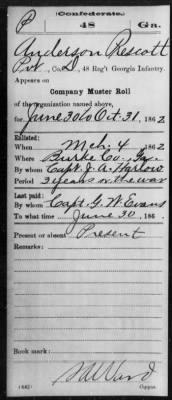 P
(Confederate.)
48
Ga.
Anderson Prescott
Pvt, Co. D, 48 Reg't Georgia Infantry.
Appears on
Company Muster Roll
of the organization named above,
for June 30 to Oct. 31, 1862.
Enlisted:
When Mch. 4, 1862
Where Burke Co., Ga.
By whom Capt. J. A. Harlow
Period 3 years or the war
Last paid:
By whom Capt. G. W. Evans
To what time June 30, 186 .
Present or absent Present
Remarks:
Book mark:
(642)
Copyist.